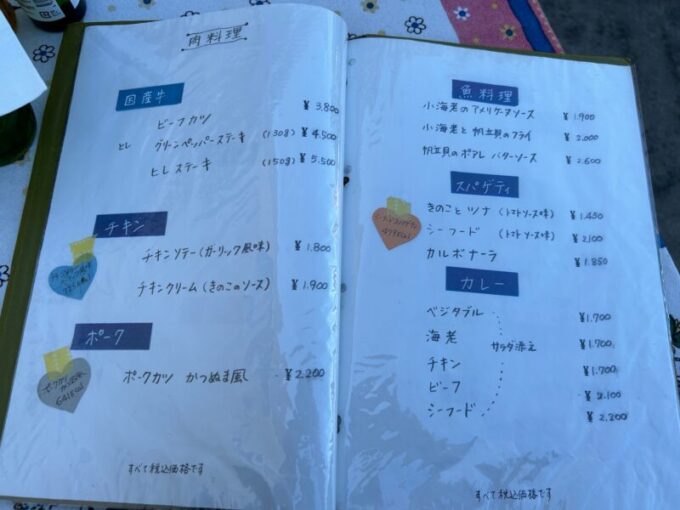 肉料理
国産牛
ビーフカツ ¥3.800
ヒレ グリーンペッパーステーキ (130g) ¥4.500
ヒレステーキ (150g) ¥5.500
チキン
チキンソテー(ガーリック風味) ¥1.800
チキンクリーム(きのこのソース) ¥1.900
ポーク
ポークカツ かつぬま風 ¥2.200
すべて税込価格です
魚料理
小海老のアメリケーヌソース ¥1.900
小海老と帆立貝のフライ ¥2.000
帆立貝のポアレ バターソース ¥2.600
スパゲティ
きのことツナ (トマトソース味) ¥1.450
シーフード (トマトソース味) ¥2100
カルボナーラ ¥1.850
カレー
ベジタブル ¥1.700
海老 サラダ添え ¥1.700
チキン ¥1.700
ビーフ ¥2.100
シーフード ¥2.200
すべて税込価格です